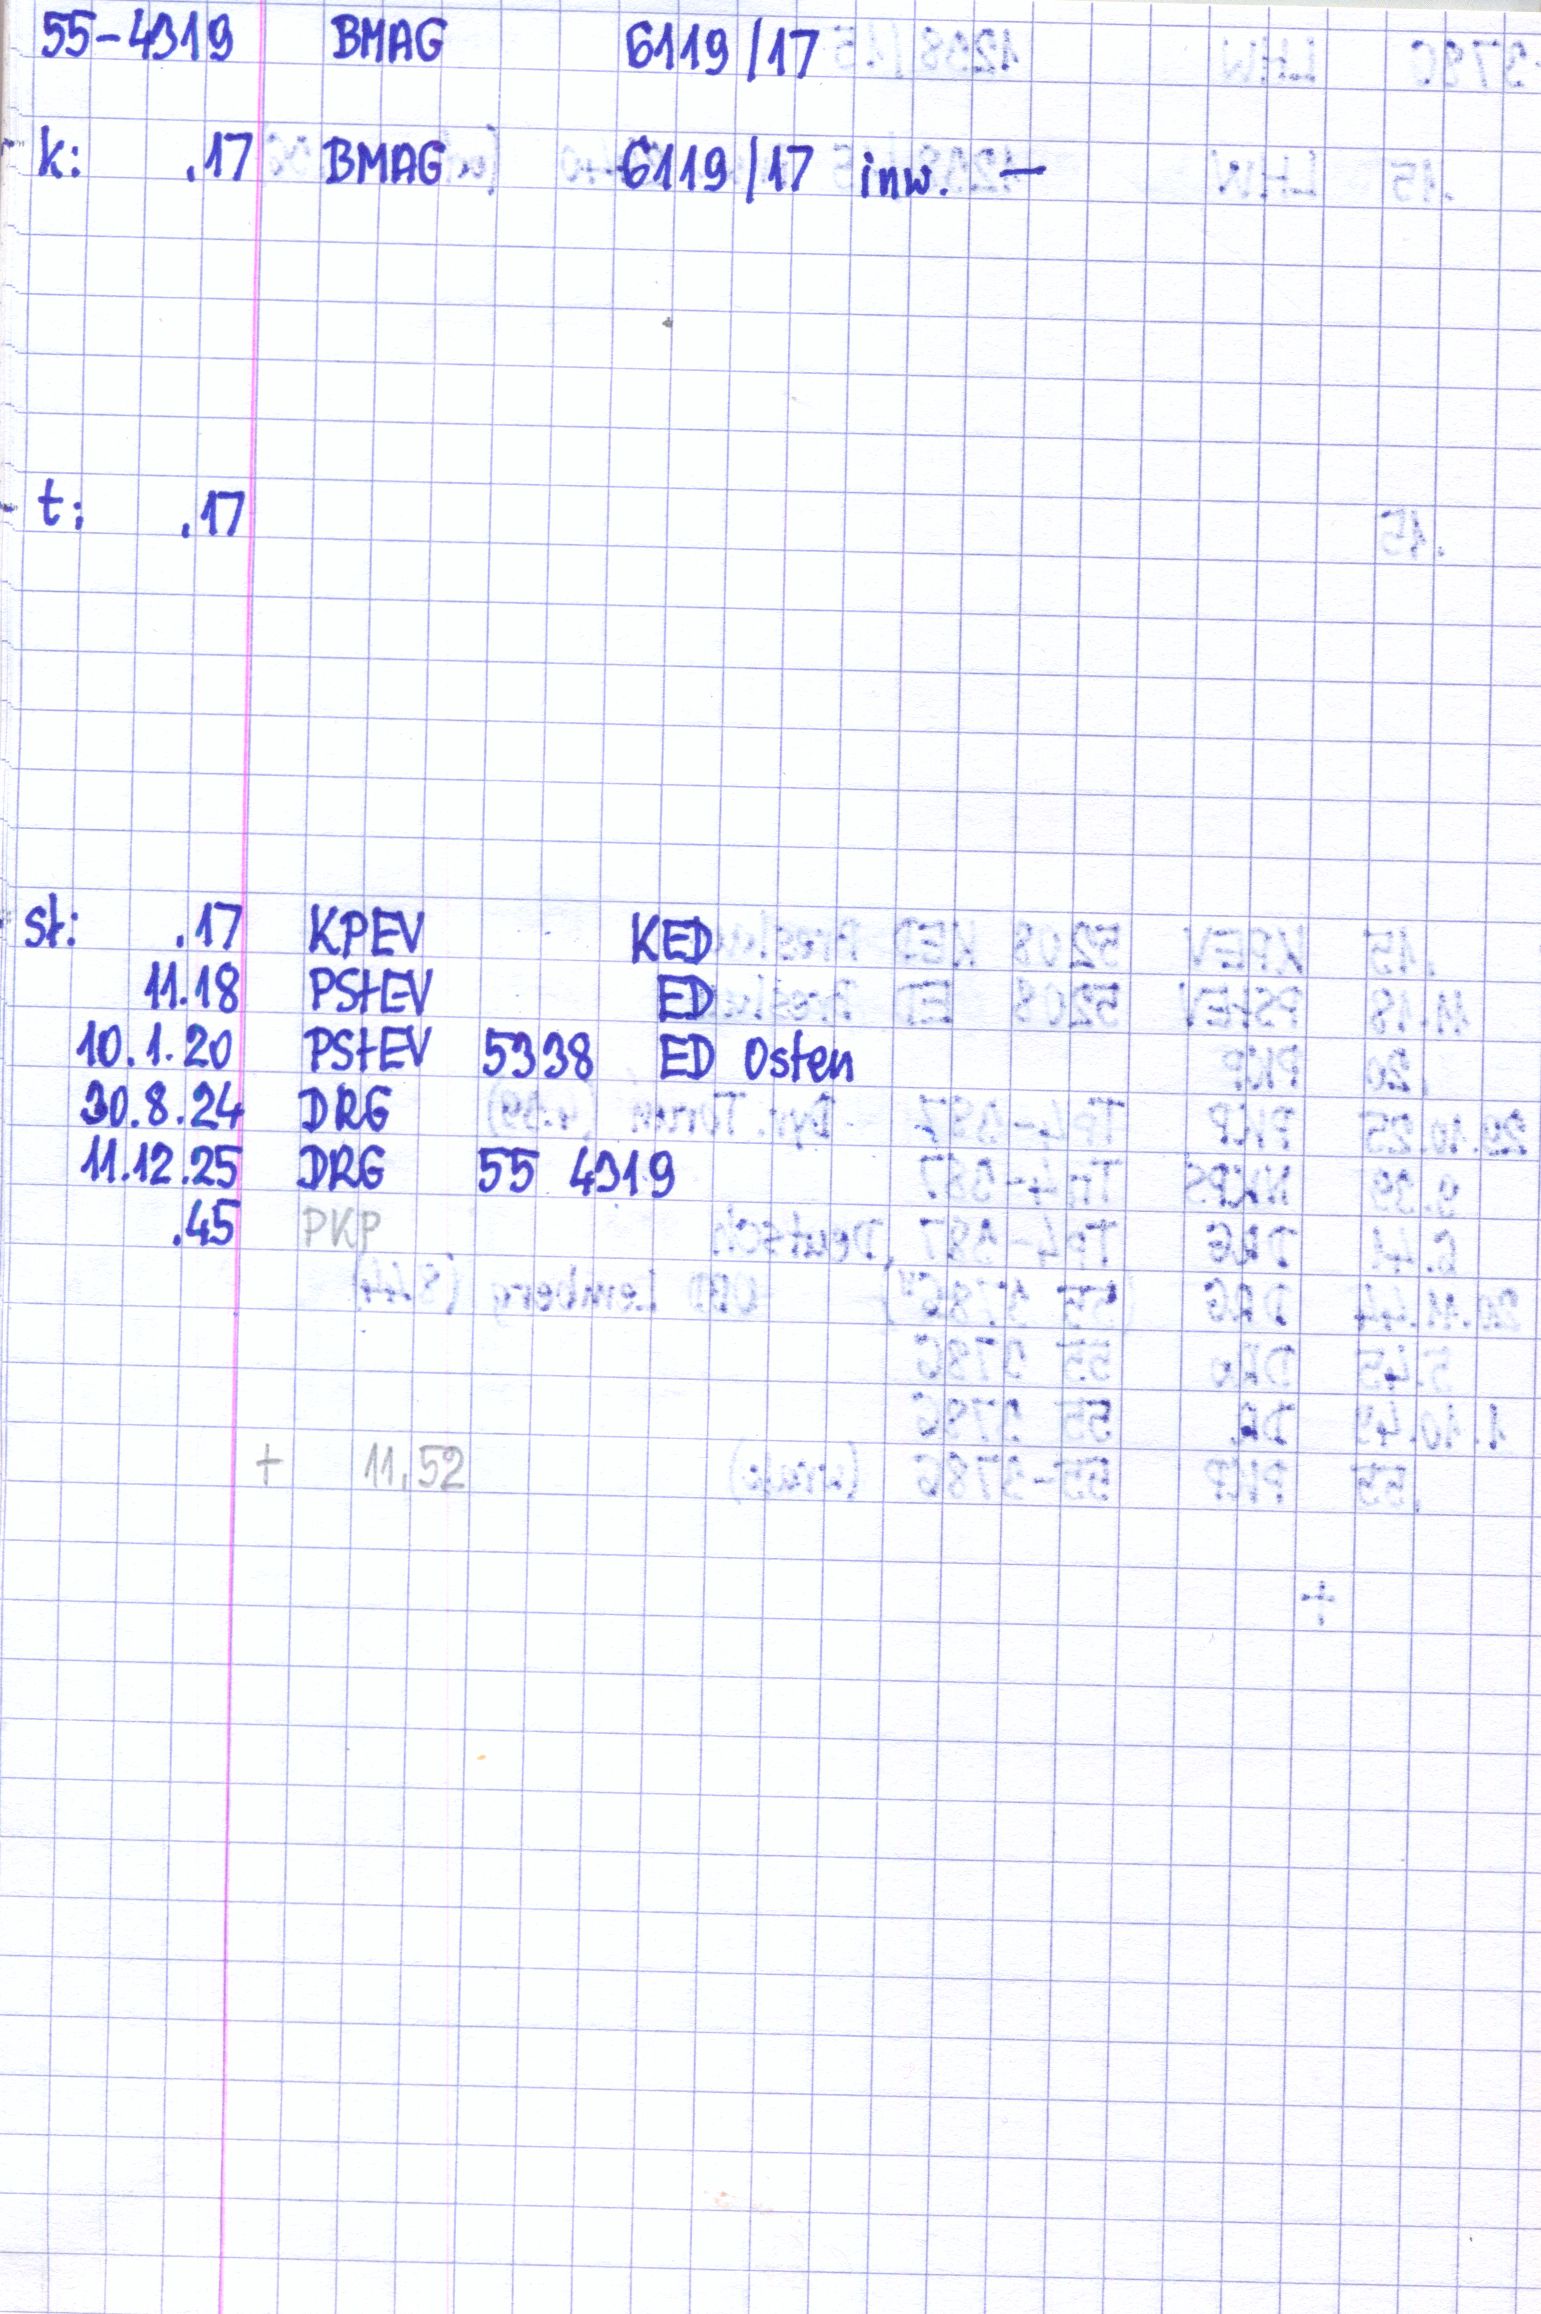 55-4319 BMAG 6119/17
k: .17 BMAG 6119/17 inw. —
t: .17
st: .17 KPEV KED
11.18 PStEV ED
10.1.20 PStEV 5338 ED Osten
30.8.24 DRG
11.12.25 DRG 55 4319
.45 PKP
+ 11.52